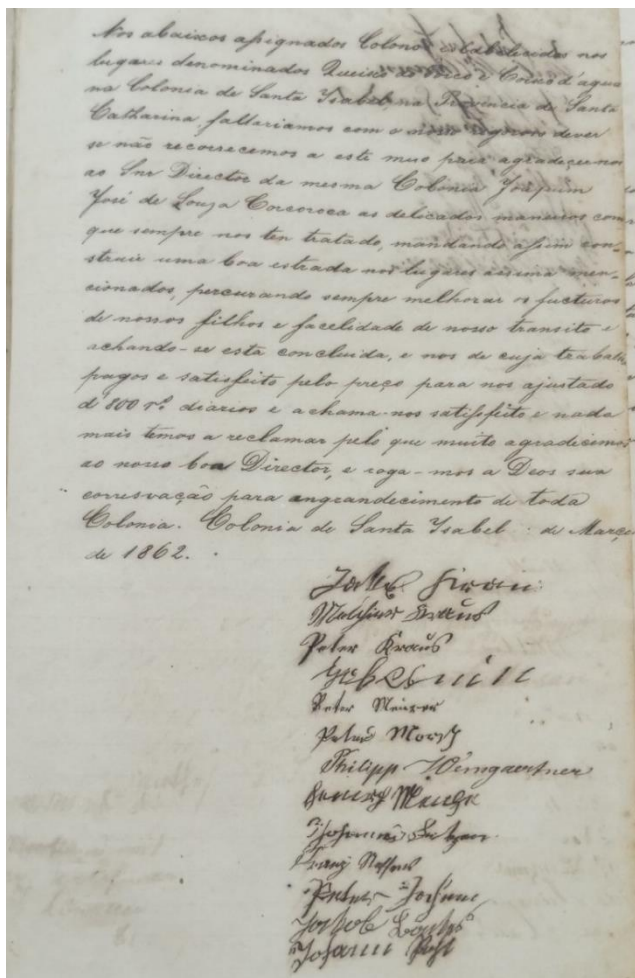 Nos abaixos assignados Colonos estabelecidos nos
lugares denominados Queixo d'agua
na Colonia de Santa Ysabel, na Provincia de Santa
Catharina faltariamos com o nosso dever
se não recorrecemos a este muo para agradecer-nos
ao Snr Director da mesma Colonia Joaquim
José de Souza Corcoroca as delicados maneiros com
que sempre nos ten tratado, mandando assim con-
struir uma boa estrada nos lugares acima men-
cionados, percurando sempre melhorar os fucturos
de nossos filhos e facelidade de nosso transito e
achando-se esta concluida, e nos de cuja trabalho
pagos e satisfeito pelo preço para nos ajustado
d'800 rs diarios e achama-nos satisfeito e nada
mais temos a reclamar pelo que muito agradicemos
ao nosso boa Director, e roga-mos a Deos sua
corresvação para angrandecimento de toda
Colonia. Colonia de Santa Ysabel de Março
de 1862.
Melchior Kraus
Peter Kraus
Peter
Peter
Philipp Weingaertner
Johannes
Franz
Peter Jochem
Jakob
Johann